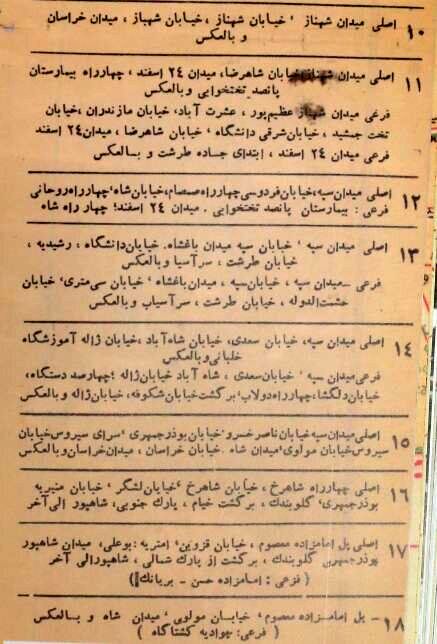 ۱۰ اصلی میدان شهناز ، خیابان شهناز ، خیابان شهباز ، میدان خراسان
و بالعکس
۱۱ اصلی میدان خیابان شاهرضا، میدان ۲۴ اسفند، چهارراه بیمارستان
پانصد تختخوابی و بالعکس
فرعی میدان عظیم‌پور ، عشرت آباد، خیابان مازندران ،خیابان
تخت جمشید ، خیابان شرقی دانشگاه ، خیابان شاهرضا ، میدان ۲۴ اسفند
فرعی میدان ۲۴ اسفند ، ابتدای جاده طرشت و بالعکس
۱۲ اصلی میدان سپه، خیابان فردوسی چهارراه صمصام، خیابان شاه، چهارراه روحانی
فرعی : بیمارستان پانصد تختخوابی . میدان ۲۴ اسفند؛ چهار راه شاه
۱۳ اصلی میدان سپه ، خیابان سپه میدان باغشاه. خیابان دانشگاه ، رشیدیه ،
خیابان طرشت ، سرآسیا و بالعکس
فرعی - میدان سپه ، خیابان سپه ، میدان باغشاه ، خیابان سی‌متری، خیابان
حشمت‌الدوله ، خیابان طرشت ، سرآسیاب و بالعکس
۱۴ اصلی میدان سپه، خیابان سعدی، خیابان شاه‌آباد ،خیابان ژاله آموزشگاه
خلبانی و بالعکس
فرعی میدان سپه ، خیابان سعدی ، شاه آباد خیابان ژاله ؛ چهارصد دستگاه،
خیابان دلگشا، چهارراه دولاب، برگشت خیابان شکوفه، خیابان ژاله و بالعکس
۱۵ اصلی میدان سپه خیابان ناصرخسرو، خیابان بوذرجمهری ، سرای سیروس خیابان
سیروس خیابان مولوی، میدان شاه . خیابان خراسان ، میدان خراسان و بالعکس
۱۶ اصلی چهارراه شاهرخ ، خیابان شاهرخ ، خیابان لشگر ، خیابان منیریه
بوذرجمهری، گلوبندک ، برگشت خیام ، پارک جنوبی، شاهپور الی آخر
۱۷ اصلی پل امامزاده معصوم ، خیابان قزوین، امیریه : بوعلی، میدان شاهپور
بوذرجمهری گلوبندک ، برگشت از پارک شمالی ، شاهپور الی آخر
( فرعی : امامزاده حسن - بریانک )
۱۸ - پل امامزاده معصوم ، خیابان مولوی ، میدان شاه و بالعکس
( فرعی: جوادیه کشتارگاه )